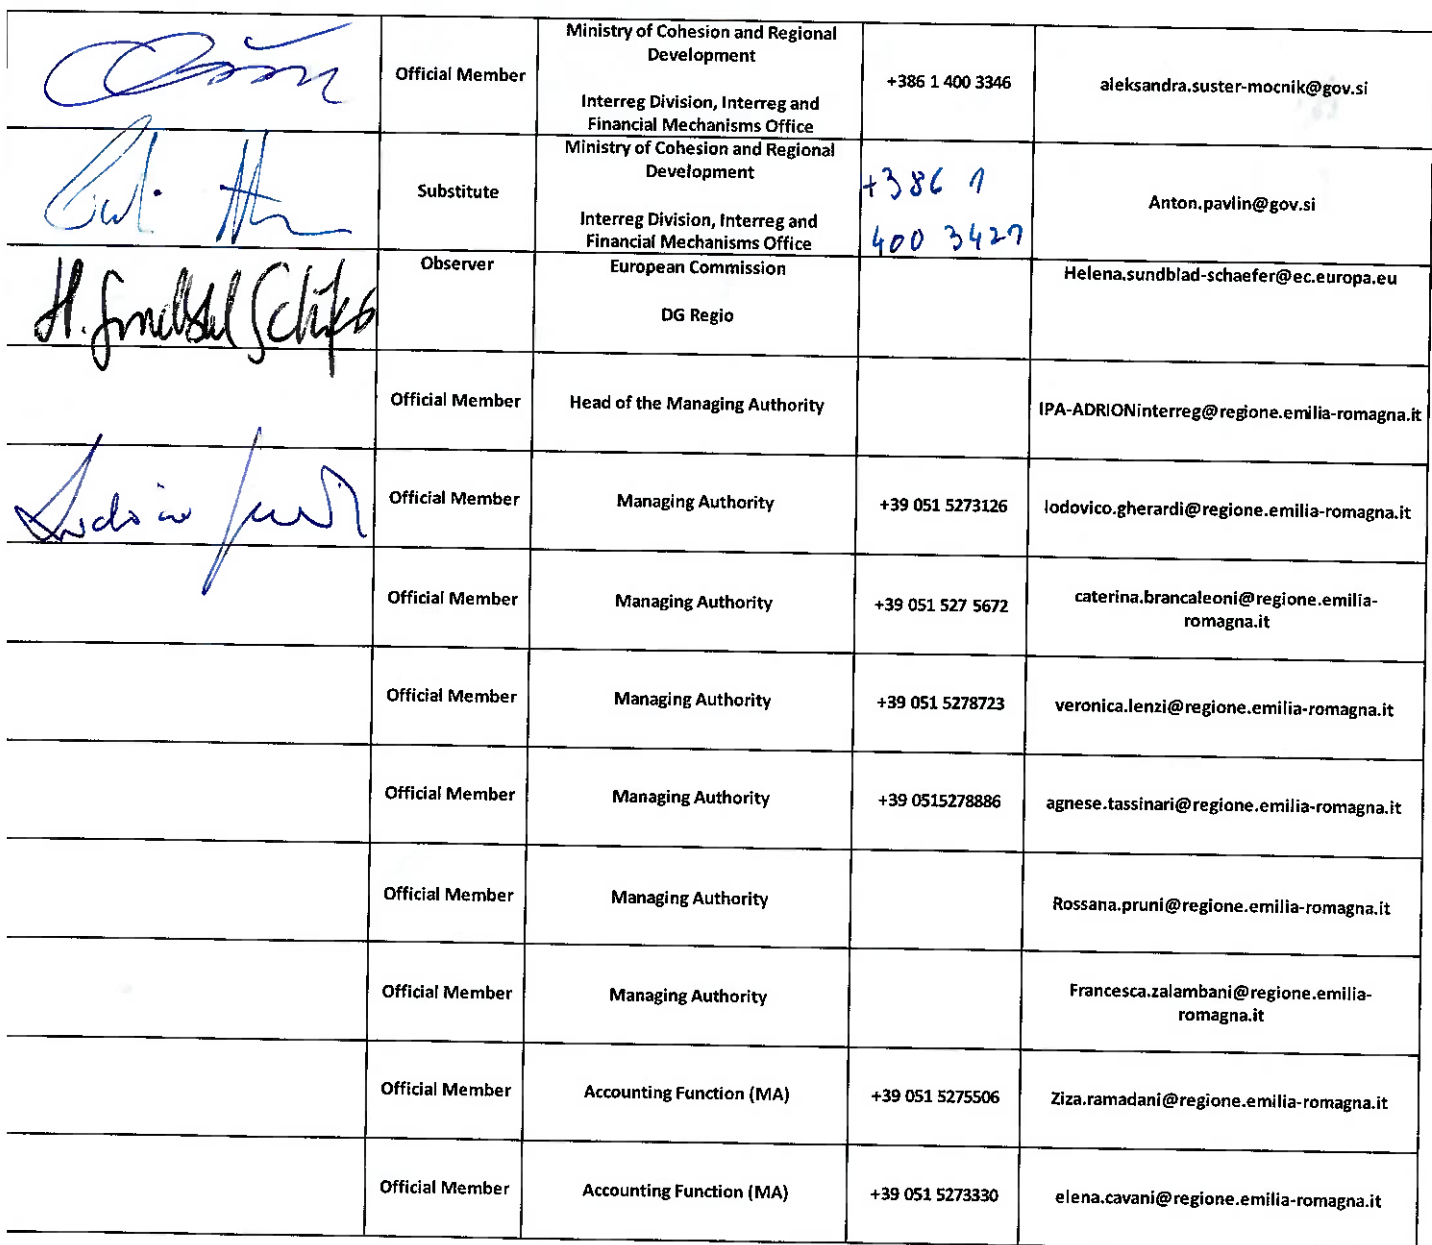 Official Member
Ministry of Cohesion and Regional
Development
Interreg Division, Interreg and
Financial Mechanisms Office
+386 1 400 3346
aleksandra.suster-mocnik@gov.si
Substitute
Ministry of Cohesion and Regional
Development
Interreg Division, Interreg and
Financial Mechanisms Office
+386 1
400 3427
Anton.pavlin@gov.si
H.
Observer
European Commission
DG Regio
Helena.sundblad-schaefer@ec.europa.eu
Official Member
Head of the Managing Authority
IPA-ADRIONinterreg@regione.emilia-romagna.it
Official Member
Managing Authority
+39 051 5273126
lodovico.gherardi@regione.emilia-romagna.it
Official Member
Managing Authority
+39 051 527 5672
caterina.brancaleoni@regione.emilia-
romagna.it
Official Member
Managing Authority
+39 051 5278723
veronica.lenzi@regione.emilia-romagna.it
Official Member
Managing Authority
+39 0515278886
agnese.tassinari@regione.emilia-romagna.it
Official Member
Managing Authority
Rossana.pruni@regione.emilia-romagna.it
Official Member
Managing Authority
Francesca.zalambani@regione.emilia-
romagna.it
Official Member
Accounting Function (MA)
+39 051 5275506
Ziza.ramadani@regione.emilia-romagna.it
Official Member
Accounting Function (MA)
+39 051 5273330
elena.cavani@regione.emilia-romagna.it